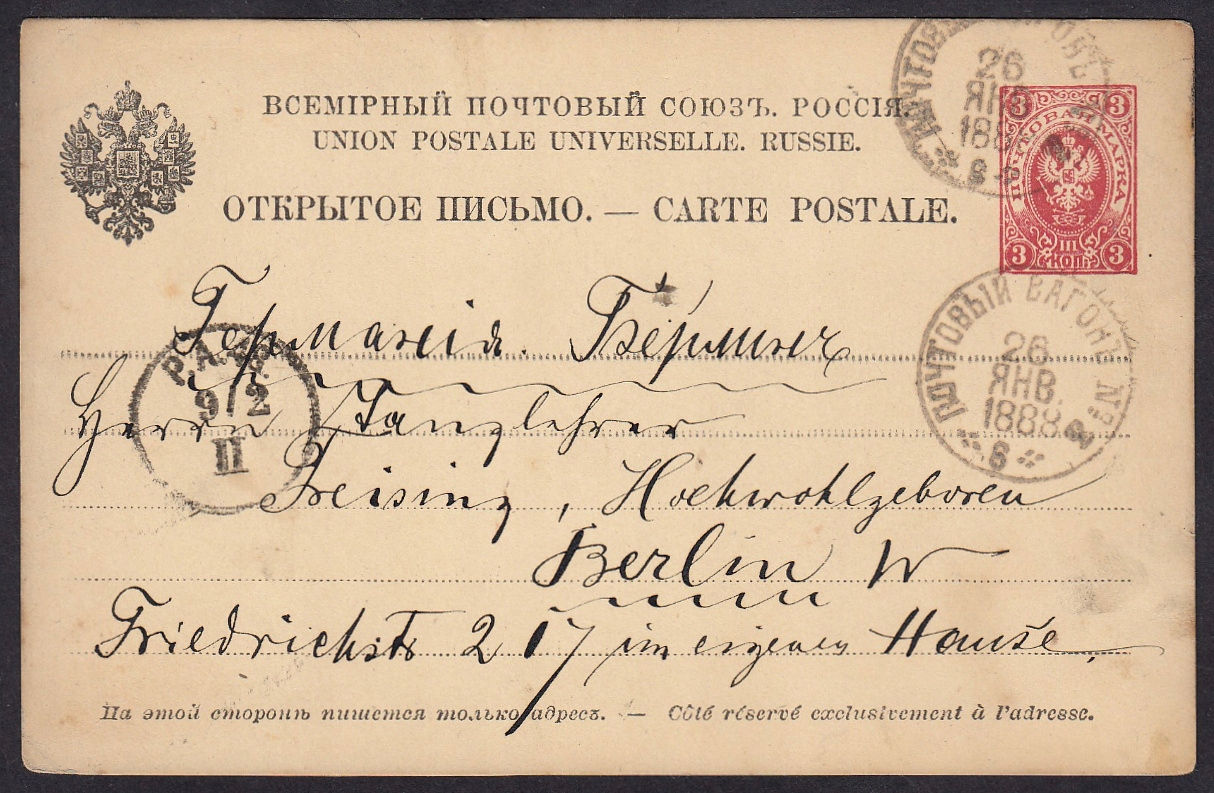 ВСЕМІРНЫЙ ПОЧТОВЫЙ СОЮЗЪ. РОССІЯ.
UNION POSTALE UNIVERSELLE. RUSSIE.
ОТКРЫТОЕ ПИСЬМО. — CARTE POSTALE.
ПОЧТОВЫЙ ВАГОНЪ
26
ЯНВ.
188
6
3 3
ПОЧТОВАЯ МАРКА
III
КОП.
3 3
ПОЧТОВЫЙ ВАГОНЪ №
26
ЯНВ.
1888
6
Германія. Берлинъ
P.A.
9/2
II
Herrn Tanzlehrer
Freising, Hochwohlgeboren
Berlin W
Friedrichstr 217 im eigenen Hause.
На этой сторонѣ пишется только адресъ. — Côté réservé exclusivement à l'adresse.